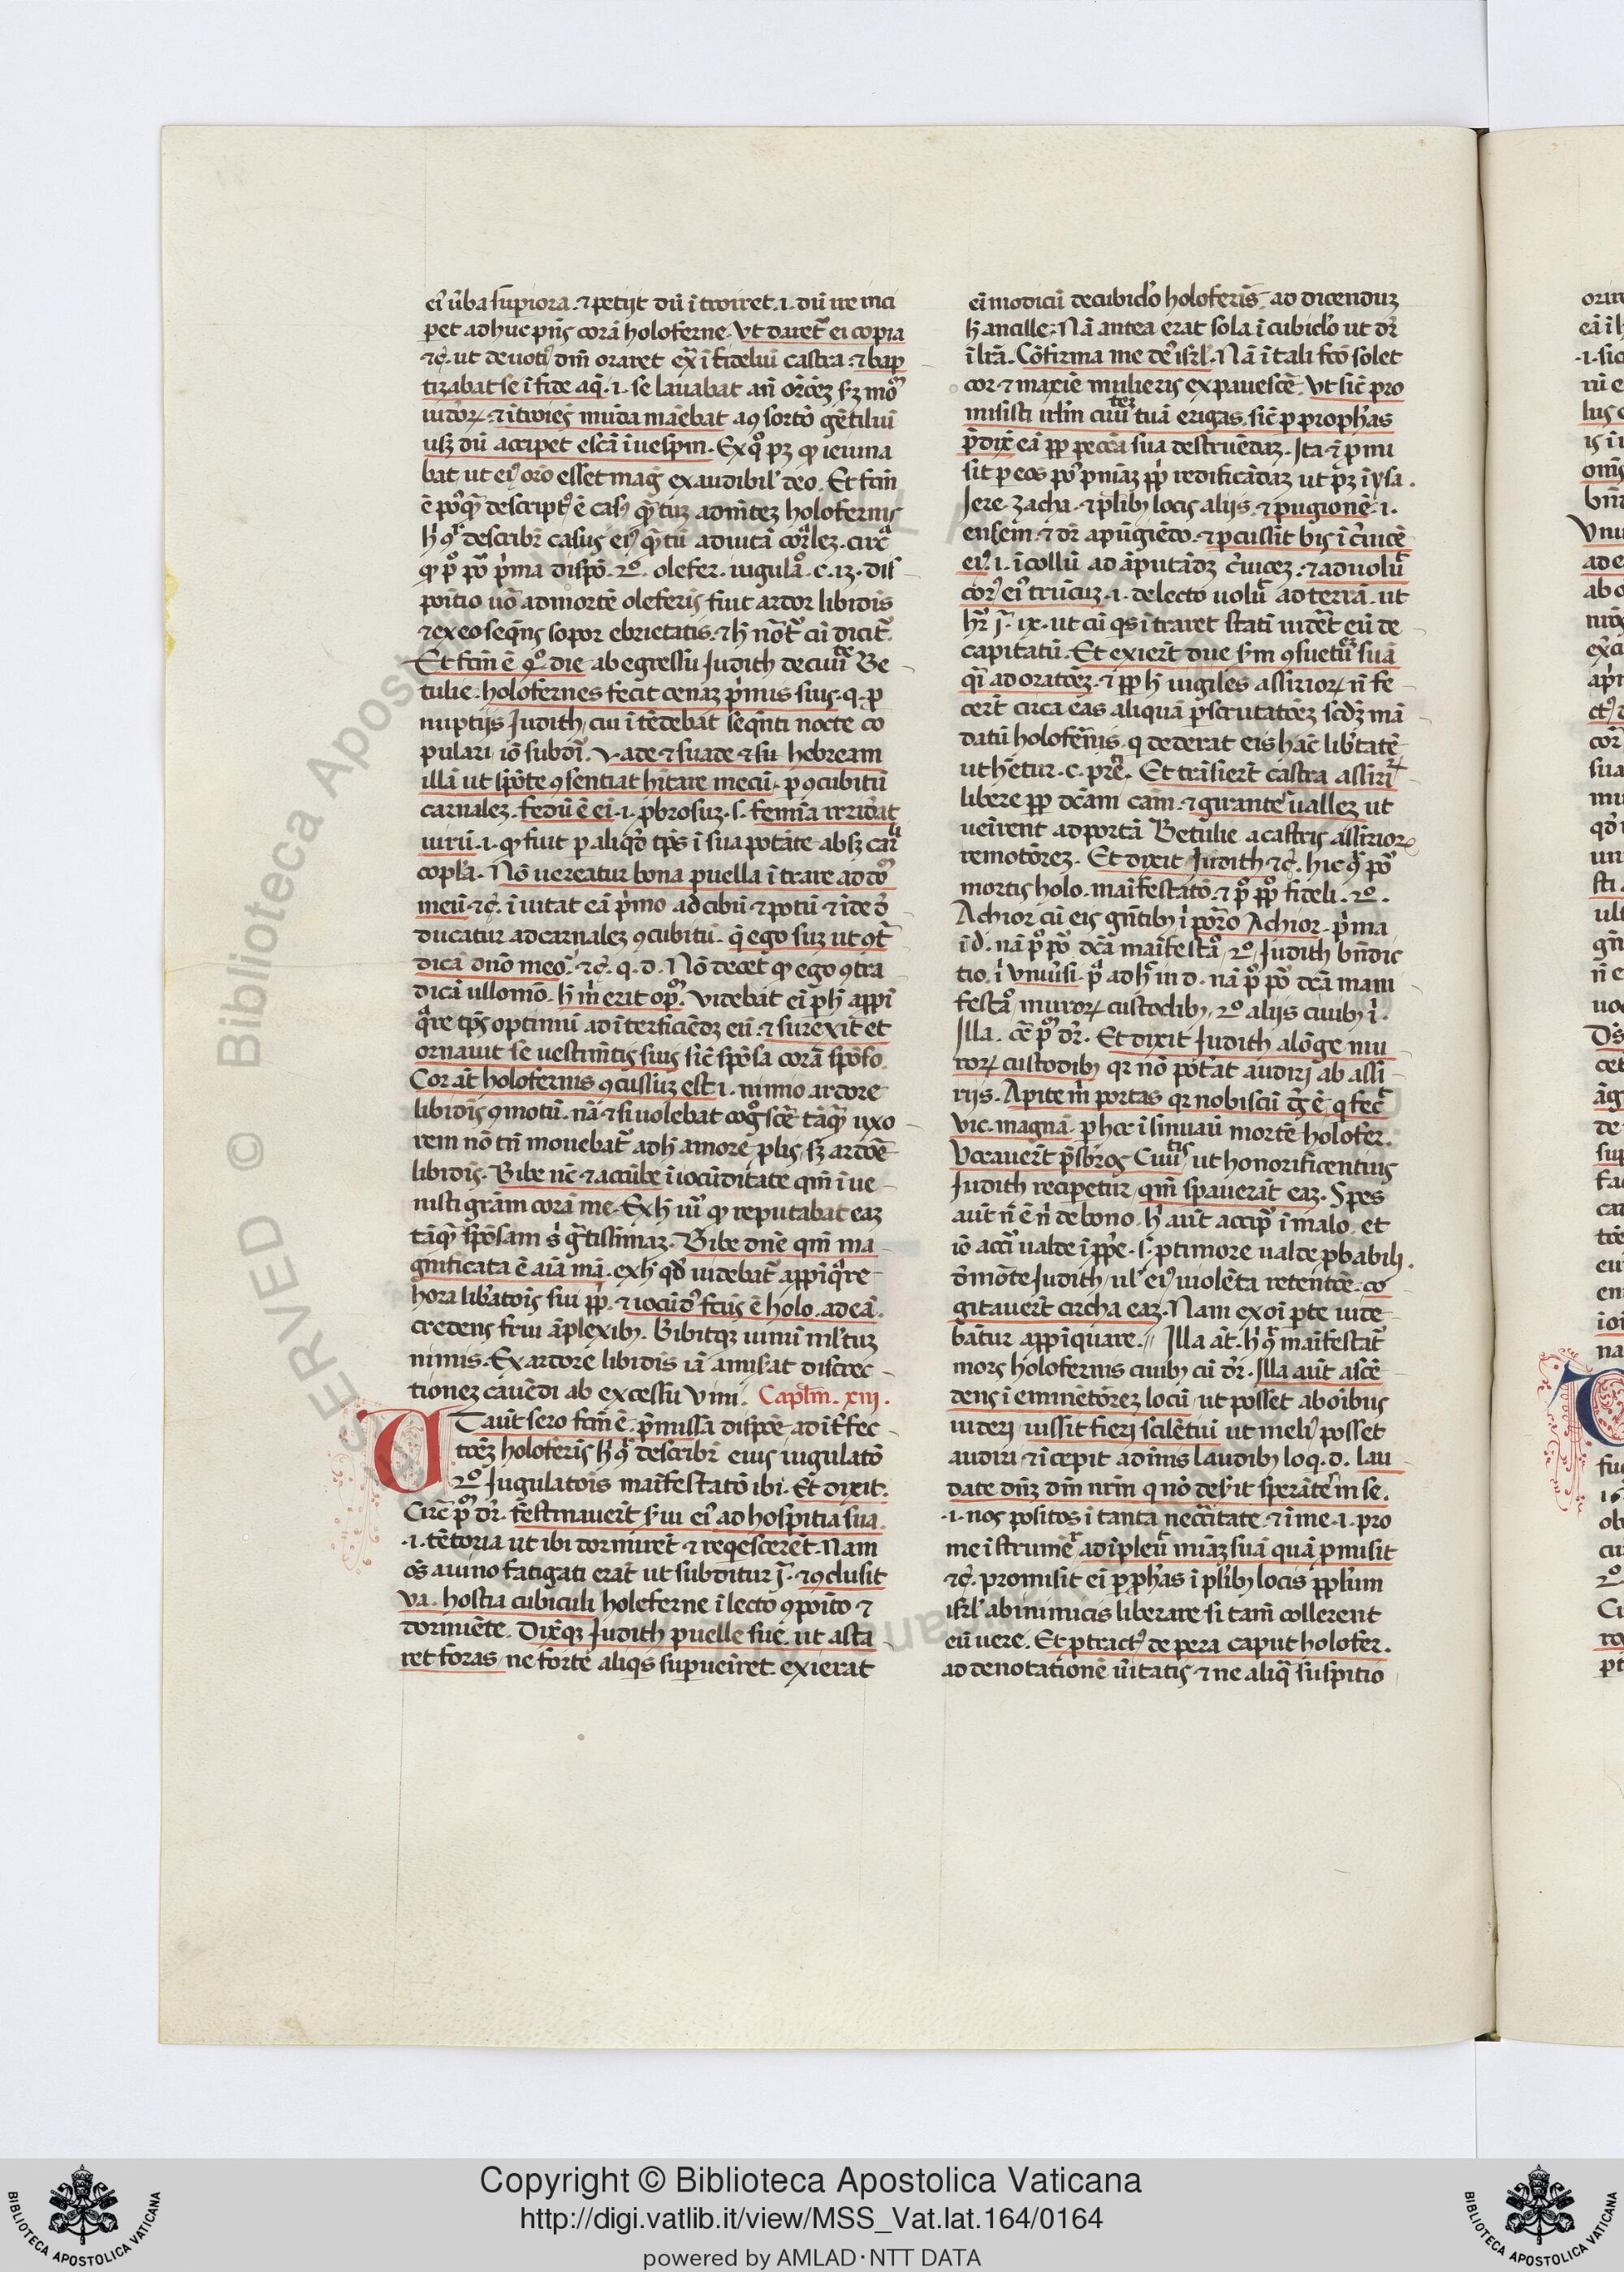 ei᷒ ūba supiora. ⁊ petijt dū ītroiret .i. dū ire inci
pet adhuc pn̄s corā holoferne. Vt daret᷑ ei copia
⁊c̄. ut deuoti᷒ dn̄m oraret ex̄ īfideliū castra. ⁊ bap
tizabat se ī fōte aq̄ .i. se lauabat an̄ or̄oēz sꝫ moꝫ
iudeoꝝ. ⁊ ītroiēs mūda manēbat aꝯ sortō gētiliū
usꝫ dū acciꝑet escā ī uespm̄. Ex q̊ pꝫ ꝙ ieiuna
bat, ut ei᷒ or̄o esset maḡ exaudibil̓ deo. Et fcm̄
ē pōq̄ descript᷒ ē casꝰ q̄tuꝫ ad mētez holofernis
h̓ ꝯn̄r describr̄ casus ei᷒ q̄tū ad uitā cor̄lez. circ̄
ꝙ pͦ pōᷓ p̓ma dispō. 2ͦ. olefer. iugulaͦ. c. 13. dis
poitio uō ad mortē oleferis fuit ardor libidīs
⁊ ex eo seqn̄s sopor ebrietatis. ⁊ h̓ nōt᷑ cū dicit᷑.
Et fcm̄ ē q͛ͦ die ab egressu Judith de ciuītᵗᵉ Be
tulie: holofernes fecit cenaꝫ p̓mis suis. q. ꝑ
nuptijs Judith, cui ītēdebat seqn̄ti nocte co
pulari iō subdi᷑. Vade ⁊ suade ⁊ su hebream
illā ut spōte ꝯsentiat hītare mecū. ꝑ ꝯcubitū
carnalez. fedū ē ei .i. p̄brosuꝫ .s. femīa irrideat
uirū .i. ꝙ fiut ꝑ aliqd̓ tp̄s ī sua potāte absꝫ car̄ᵃˡⁱ
copl̓a. Nō uereatur bona puella ītrare ad dōᵐ
meū ⁊c̄. īuitat eā p̓mo ad cibū ⁊ potū ⁊ īde d̓
ducatur ad carnalez ꝯcubitū. q̄ ego suꝫ ut ꝯt᷑
dicā dn̄o meo. ⁊c̄. q. d. Nō decet ꝙ ego ꝯtra
dicā ullomō. h̓ m̓ erit opͫ. Videbat ei᷑ ꝑ h̓ appī
q̊re tp̄s optimū ad īterficiēdꝫ eū. ⁊ surexit et
ornauit se uestimtis suis sic̄ spōsa corā spōso.
Cor at̄ holofernis ꝯcussuꝫ est .i. nimio ardore
libidīs ꝯmotū. nā ⁊ si uolebat cog̊sce̊ tāq̄ uxo
rem nō tn̄ mouebat᷑ ad h̓ amore ꝓlis, sꝫ ardoē
libidīs. Bibe nc̄ ⁊ accūbe ī iocūditate qm̄ īue
nisti grām corā me. Ex h̓ iu᷑ ꝙ reputabat eaꝫ
tāq̄ spōsam s̓ g̓tissimaꝫ. Bibe dn̄e qm̄ ma
gnificata ē aīa mā. ex h̓ qd̓ uidebat᷑ appīq̊re
hora lib̓atōis sui pp̓. ⁊ iocūd᷒ fcūs ē holo. ad eā.
credens frui āplexibꝫ. Bibitqꝫ uinū ml̓tuꝫ
nimis. Ex ardore libidis iā amis̓at discrec
tionez cauēdi ab excessu Vini. Caplm̄. xiij.
Vt aūt sero fcm̄ ē. p̄missā dispōē ad īt̄fec
tōeꝫ holoferis h̓ ꝯn̄r describr̄ eius iugulatō
2ͦ Jugulatōis manifestatō ibi. Et dixit.
Circ̄ pͫ dr̄. festinauerūt s̓ui ei᷒ ad hospitia sua
.i. tētoria ut ibi dormirēt ⁊ reqescerēt. Nam
oēs a uino fatigati erāt ut subditur j̄. ⁊ ꝯclusit
va. hostia cubiculi holeferne ī lecto ꝯpoito ⁊
dormiēte. Dixꝗꝫ Judith puelle sue ut asta
ret foras, ne forte aliqs supueīret. exierat
ei modicū de cubicl̓o holoferis. ad dicenduꝫ
h̓ ancille: Nā antea erat sola ī cubicl̓o ut dr̄
ī lrā. Cōfirma me de᷒ isrl̓. Nā ī tali fcō solet
cor ⁊ maxīe mulieris expauescē. Vt sic̄ pro
misisti irl̓m ciuītᵗᵉᶻ tuā erigas. sic̄ ꝑ proph̄as
p̄dixi eā pp̓ pecc̄a sua destruēdaꝫ. Ita ⁊ ꝑmi
sit ꝑ eos pō pnīaꝫ pp̓ redificādaꝫ ut pꝫ ī ysa.
Jere. zacha. ⁊ pl̓ibꝫ locis alijs. ⁊ pugionē .i.
ensem. ⁊ dr̄ a pūgiēdo. ⁊ ꝑcussit bis ī c̓uicē
ei᷒ .i. ī collū ad āputādꝫ c̓uicez. ⁊ aduoluᷓ
corꝰ ei᷒ trūcuꝫ .i. de lecto uoluᷓ ad terrā. ut
hr̄ j̄. ix. ut cū qs ītraret stati uidet eū de
capitatū. Et exierūt due s̓m ꝯsuetuᵈ̄ suā
q̄i ad oratōeꝫ. ⁊ pp̓ h̓ uigiles assirioꝝ n̄ fe
cerūt circa eas aliquā ꝑscrutatōeꝫ scd̓ꝫ mā
datū holofernis. q dederat eis hāc lib̓tatē
ut hētur. c. prē. Et trāsierūt castra assiriꝝ
libere pp̓ dc̄am cām. ⁊ girante uallez ut
ueīrent ad portā Betulie a castris assirioꝝ
remotōrez. Et dixit Judith ⁊c̄. hic ꝯn̄r pōᷓ
mortis holo. maīfestatō. ⁊ pͦ ppͦ fideli. 2ͦ.
Achior cū eis gn̄tibꝫ ī porro Achior. p̓ma
ī d. nā pͦ pōᷓ dc̄ā maifestaͦ. 2ͦ. Judith bn̄dic
tio. ī Vniūsi. pᷓ ad h̓ in d. nā pͦ pōᷓ dc̄ā mani
festaͦ muroꝝ custodibꝫ. 2ͦ. alijs ciuibꝫ ī.
Illa. cē pͫ dr̄. Et dixit Judith alōge mu
roꝝ custodibꝫ qr nō potāt audiri ab assi
rijs. Apite m̓ portas qr nobiscū d̄s ē. q feᷓ
vic. magnā. ꝑ hoc īsinuāū mortē holofer.
Vocauerūt p̄sbros Ciuīᵗⁱˢ ut honorificentius
Judith reciperetur. qm̄ spauerāt eaꝫ. Spes
aūt n̄ ē n̄ de bono. h̓ aūt accip̄ ī malo. et
iō acci᷑ ualde īppē. s. ꝑ timore ualde ꝓbabili.
d̓ mōte Judith, ul̓ ei᷒ uiolēta retentōe. co
gitauerūt circha eaꝫ. Nam ex oī ꝑte uide
bātur appīquare. Illa at̄. h̓ ꝯn̄r maifestat᷑
mors holofernis ciuibꝫ cū dr̄. Illa aūt ascē
dens ī eminētōrez locū, ut posset ab oībus
uideri, iussit fieri scilētiū ut meli᷒ posset
audiri. ⁊ īcepit a dīnis laudibꝫ loq. d. lau
date dn̄ꝫ dm̄ nr̄m q nō des̓it sperātes ī se.
.i. nos positos ī tanta neccitate. ⁊ ī me .i. pro
me īstrumē᷑ adīpleū miāꝫ suā quā ꝑmisit
⁊c̄. promisit ei ꝑ ꝓph̄as ī pl̓ibꝫ locis ppl̓um
isrl̓ ab inimicis liberare si tam̄ collerent
eū uere. Et ꝑtract᷒ de pera caput holofer.
ad denotationē ūitatis ⁊ ne aliq̄ suspitio
Copyright © Biblioteca Apostolica Vaticana
http://digi.vatlib.it/view/MSS_Vat.lat.164/0164
powered by AMLAD·NTT DATA